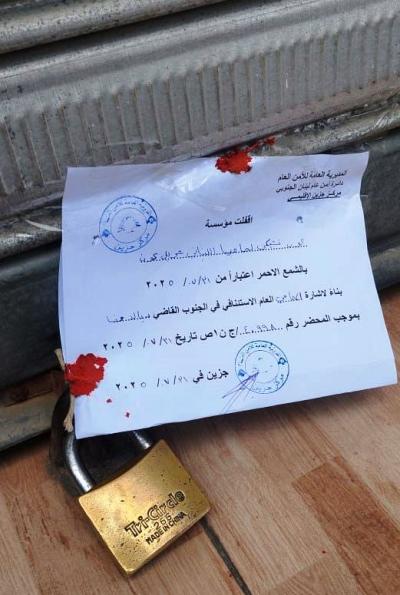 المديرية العامة للأمن العام
دائرة أمن عام لبنان الجنوبي
مركز جزين الإقليمي
اقفلت مؤسسة
بالشمع الاحمر اعتباراً من ٧/٢١/ ٢٠٢٥
بناءً لاشارة المحامي العام الاستئنافي في الجنوب القاضي
بموجب المحضر رقم ٤٠٩٩٨ /ج ن١ص تاريخ ٧/٢١/ ٢٠٢٥
جزين في ٧/٢١/ ٢٠٢٥
Tri-Circle
266
MADE IN CHINA